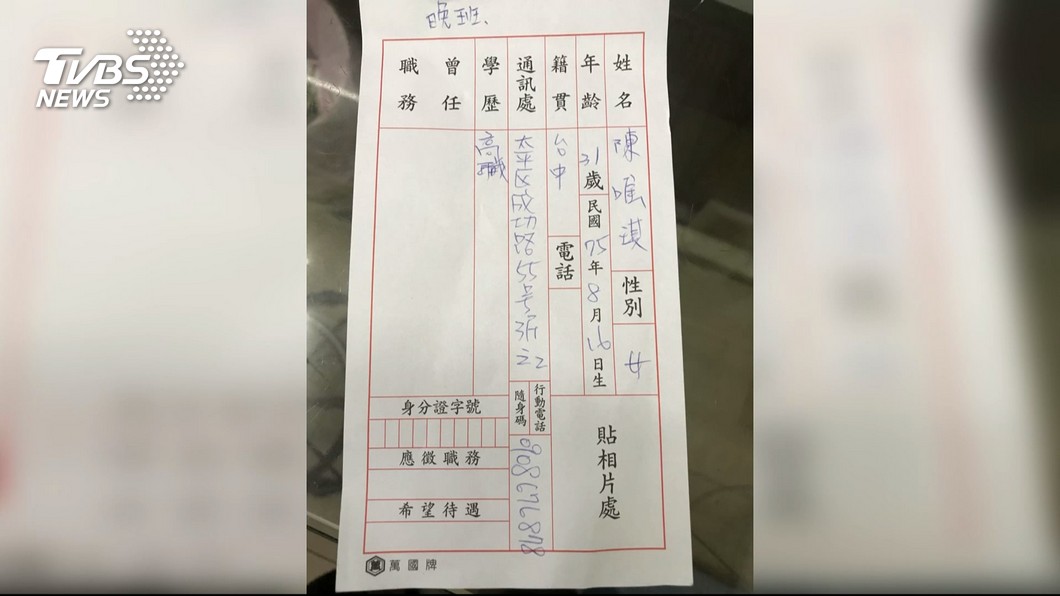 TVBS
NEWS
晚班、
姓名
陳
琪
性別
女
年齡
31歲
民國75年8月16日生
籍貫
台中
電話
通訊處
太平區成功路55号
之2
學歷
高職
曾任職務
行動電話
隨身碼
0908676878
貼相片處
身分證字號
應徵職務
希望待遇
萬國牌